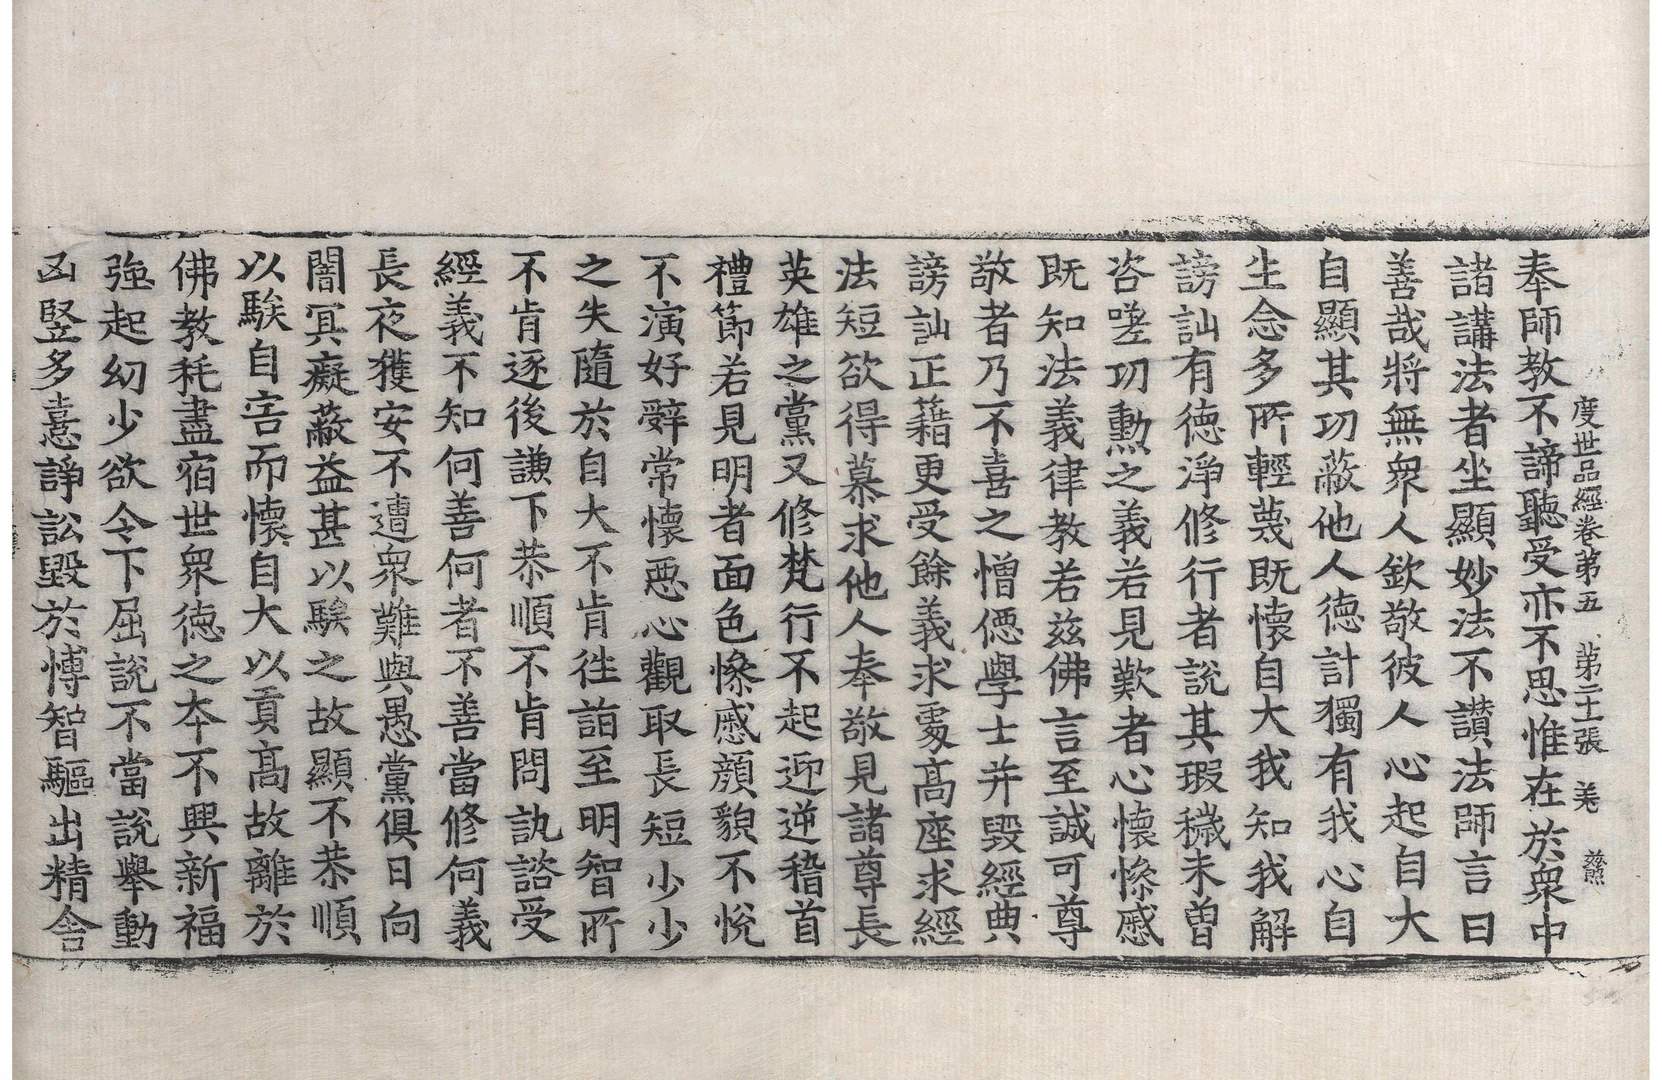 度世品經卷第五　第二十張　羌　慈熈
奉師教不諦聽受亦不思惟在於衆中
諸講法者坐顯妙法不讃法師言曰
善哉將無衆人欽敬彼人心起自大
自顯其功蔽他人德計獨有我心自
生念多所輕蔑既懷自大我知我解
謗訕有德淨修行者說其瑕穢未曽
咨嗟功勳之義若見歎者心懷慘慼
既知法義律教若兹佛言至誠可尊
敬者乃不喜之憎僫學士并毀經典
謗訕正藉更受餘義求䖏髙座求經
法短欲得慕求他人奉敬見諸尊長
英雄之黨又修梵行不起迎逆稽首
禮節若見明者面色慘慼顔貌不悅
不演好辤常懷惡心觀取長短少少
之失隨於自大不肯徃詣至明智所
不肯逐後謙下恭順不肯問訊諮受
經義不知何善何者不善當修何義
長夜獲安不遭衆難與愚黨俱日向
闇冥癡蔽益甚以騃之故顯不恭順
以騃自害而懷自大以貢髙故離於
佛教秏盡宿世衆德之夲不興新福
強起幻少欲令下屈說不當說舉動
凶竪多憙諍訟毀於博智驅出精舎